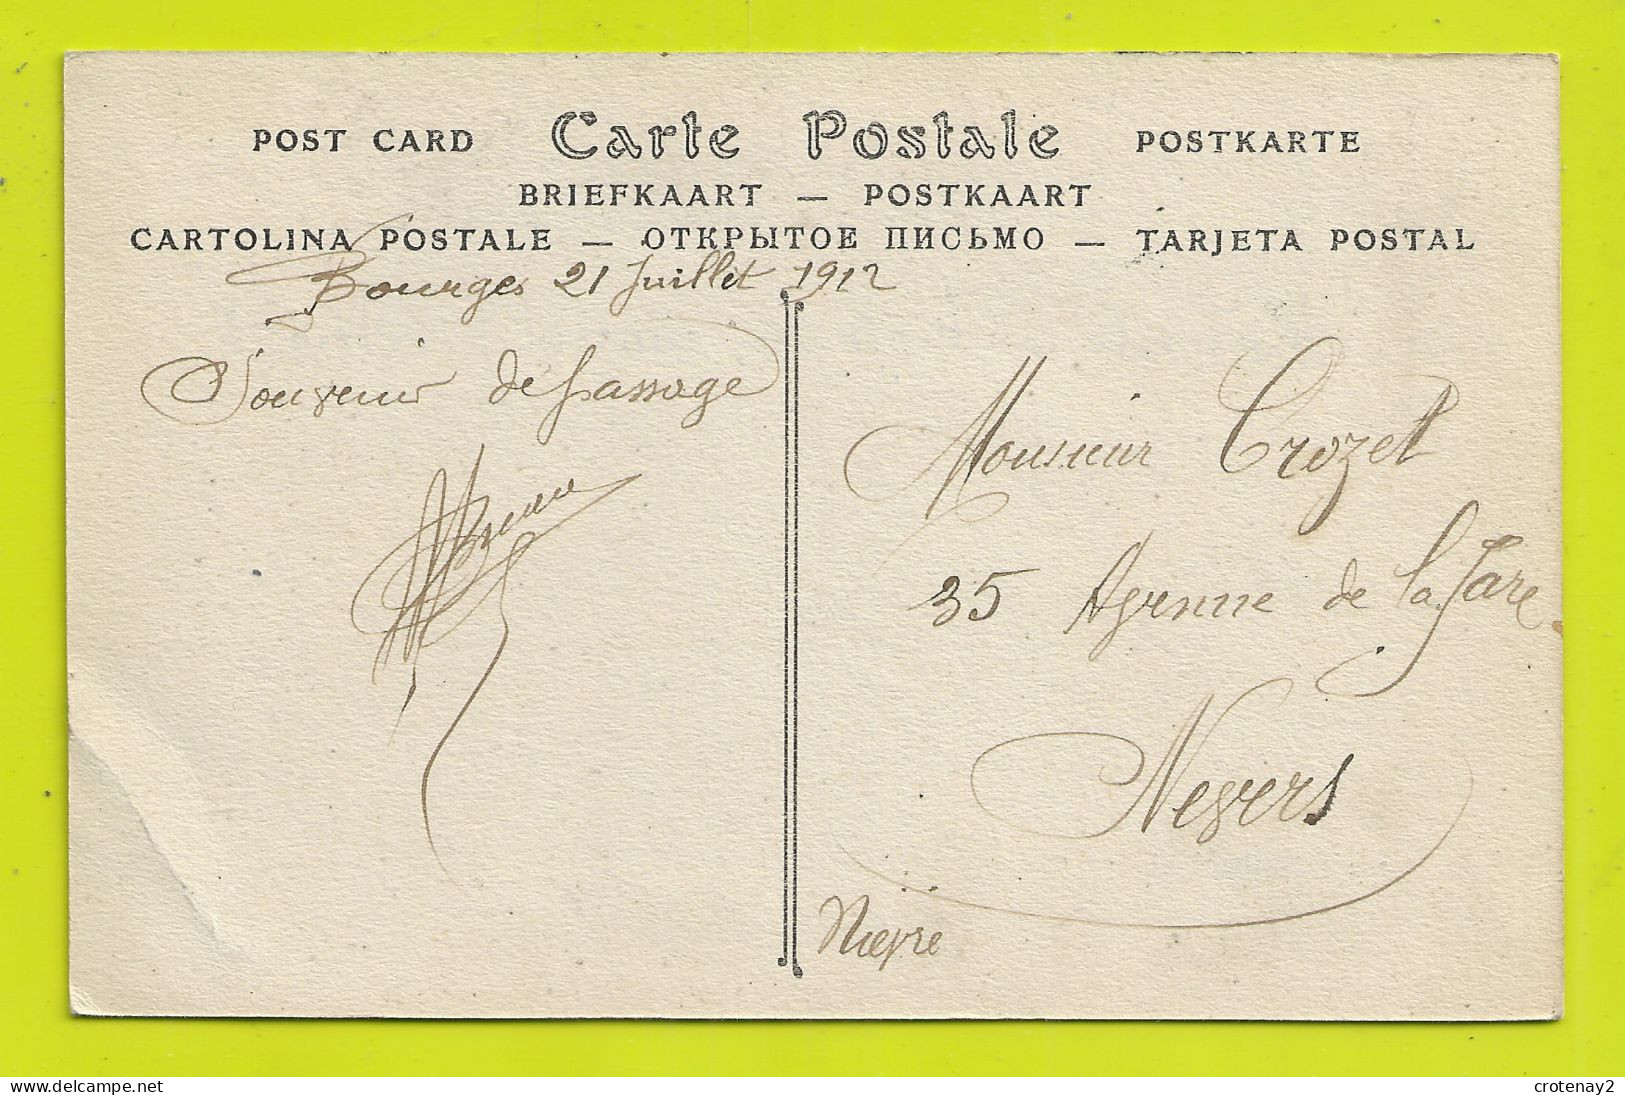 POST CARD Carte Postale POSTKARTE
BRIEFKAART — POSTKAART
CARTOLINA POSTALE — ОТКРЫТОЕ ПИСЬМО — TARJETA POSTAL
Bourges 21 Juillet 1912
Souvenir de passage
Monsieur Crozet
35 Avenue de la Gare
Nevers
Nièvre
crotenay2